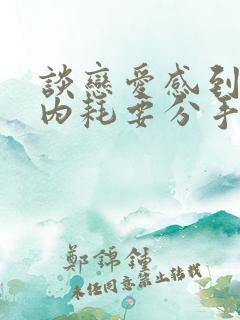 談戀愛感到
內耗要分手
鄭錦鍾
未經同意禁止轉載